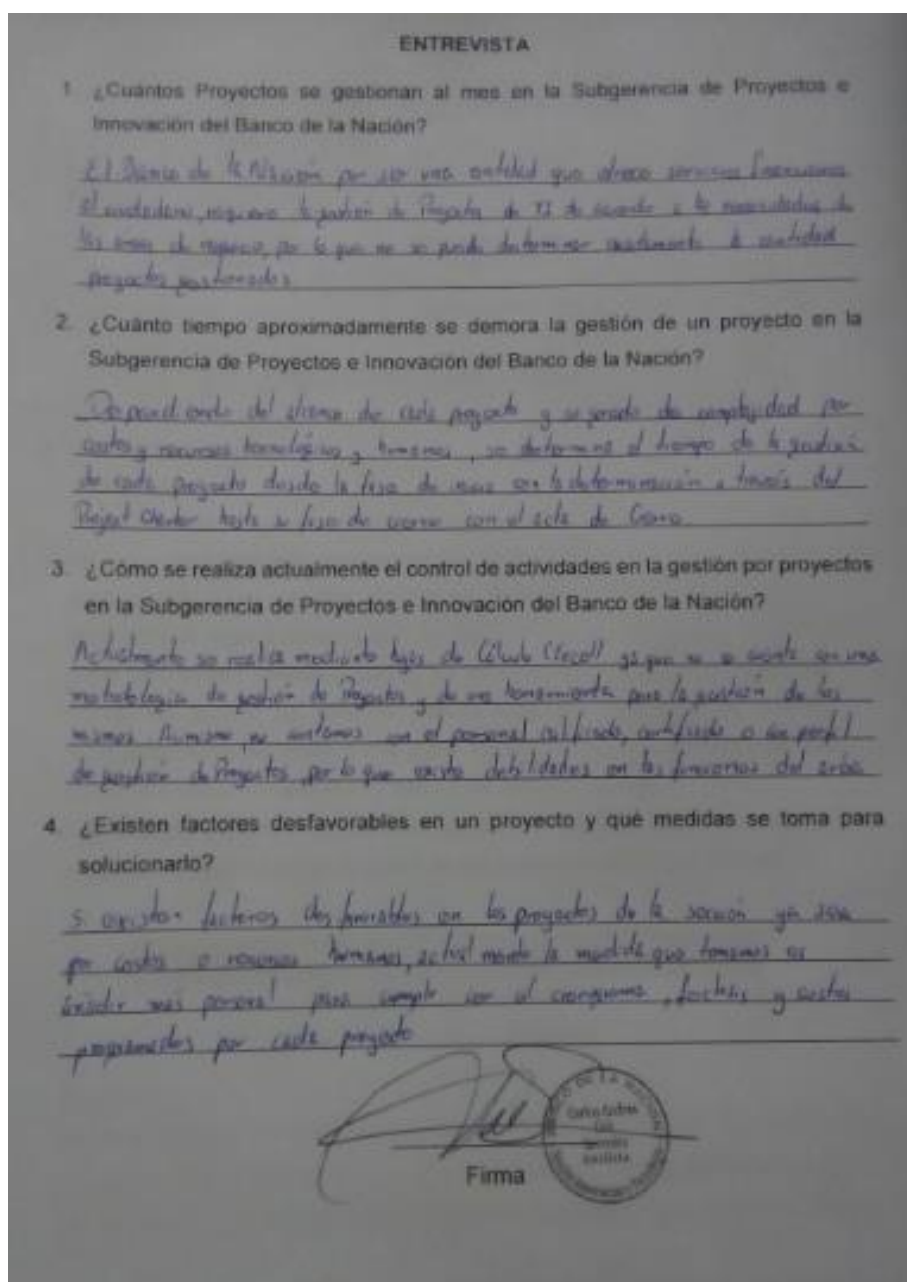 ENTREVISTA
1 ¿Cuántos Proyectos se gestionan al mes en la Subgerencia de Proyectos e
Innovación del Banco de la Nación?
El Banco de la Nación por ser una entidad que ofrece servicios financieros
al ciudadano, requiere la gestión de Proyectos de TI de acuerdo a las necesidades de
las áreas de negocio, por lo que no se puede determinar exactamente la cantidad
proyectos gestionados
2. ¿Cuánto tiempo aproximadamente se demora la gestión de un proyecto en la
Subgerencia de Proyectos e Innovación del Banco de la Nación?
Dependiendo del alcance de cada proyecto y su grado de complejidad por
costos y recursos tecnológicos y humanos, se determina el tiempo de la gestión
de cada proyecto desde la fase de inicio con la determinación a través del
Project Charter hasta su fase de cierre con el acta de Cierre.
3. ¿Cómo se realiza actualmente el control de actividades en la gestión por proyectos
en la Subgerencia de Proyectos e Innovación del Banco de la Nación?
Actualmente se realiza mediante hojas de Cálculo (Excel) ya que no se cuenta con una
metodología de gestión de Proyectos y de una herramienta para la gestión de los
mismos. Asimismo, no contamos con el personal calificado, certificado o con perfil
de gestión de Proyectos, por lo que existe debilidades en las funciones del área.
4. ¿Existen factores desfavorables en un proyecto y qué medidas se toma para
solucionarlo?
Si existen factores desfavorables en los proyectos de la sección ya sea
por costos o recursos humanos, actualmente la medida que tomamos es
añadir más personal para cumplir con el cronograma, y costos
programados por cada proyecto
DE LA NACION
Carlos Andres
Firma